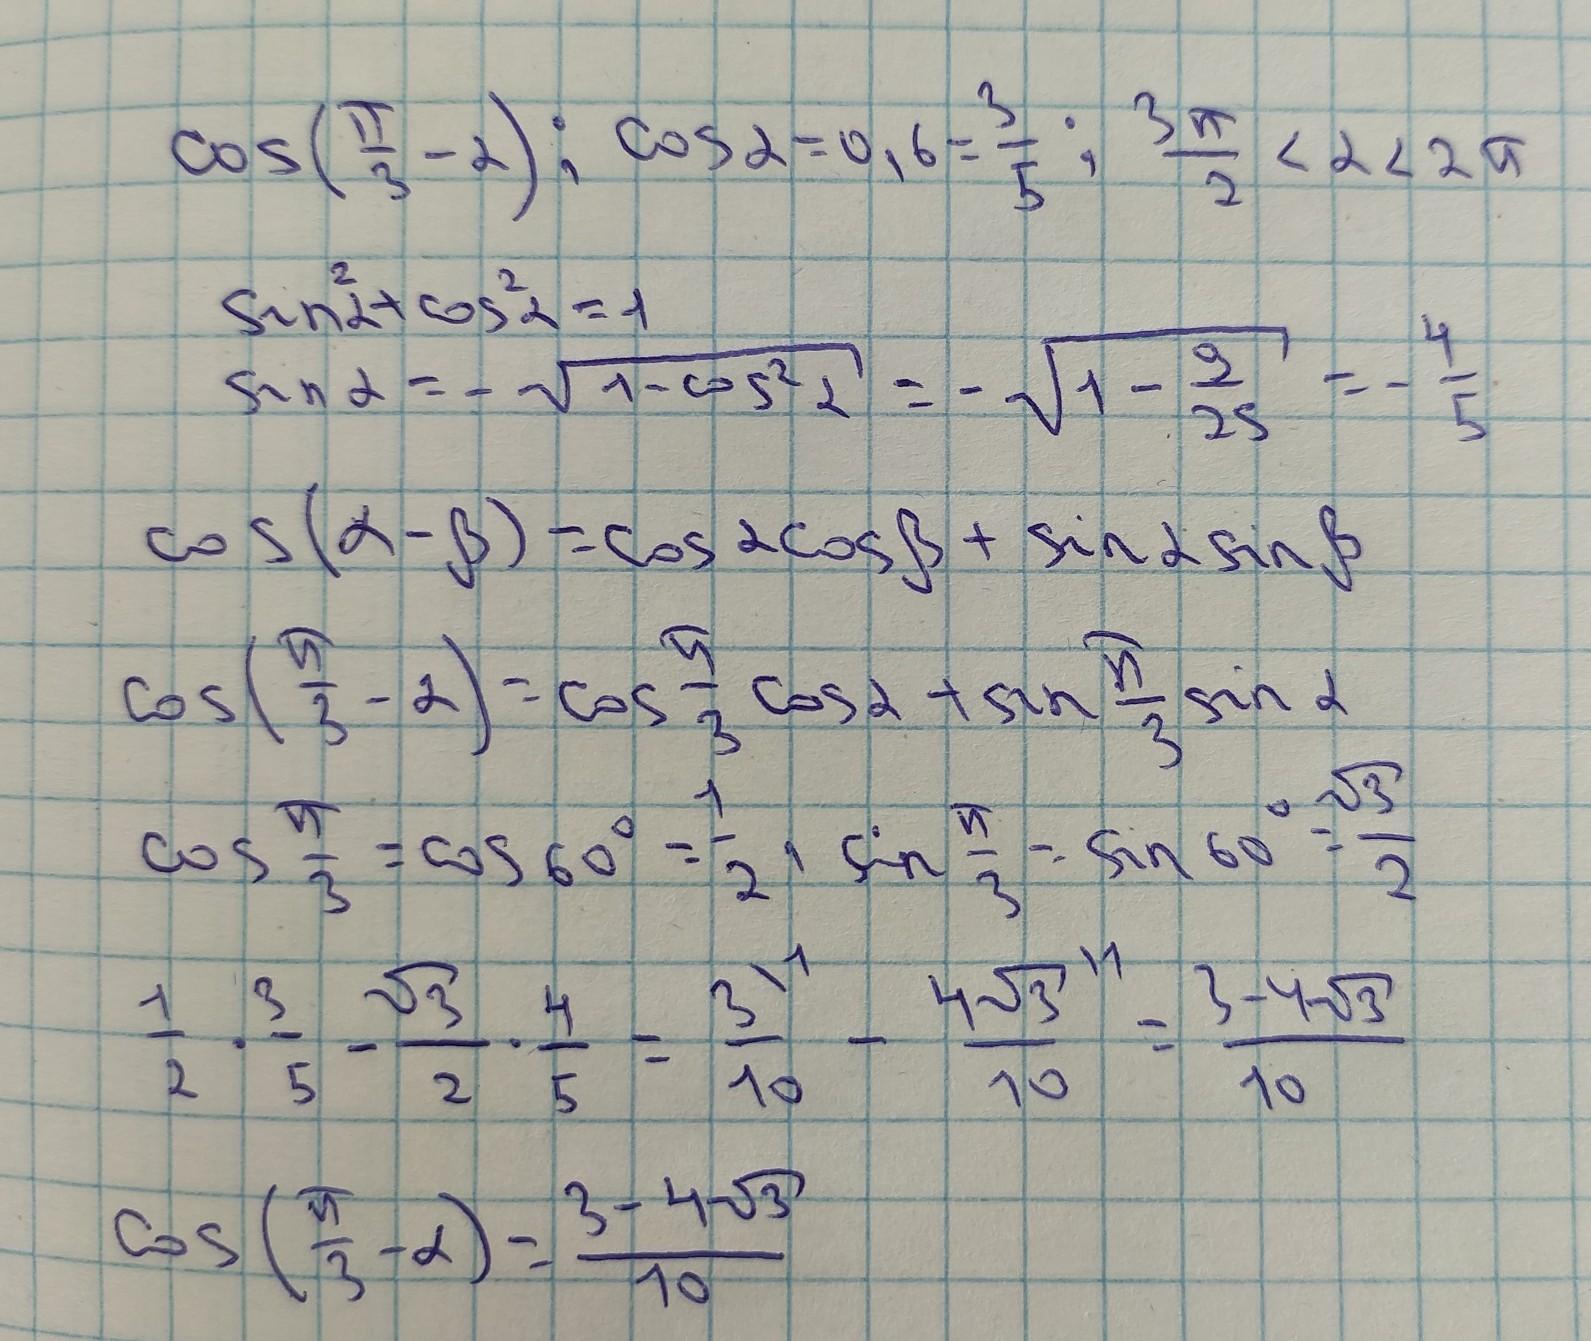 cos(π/3 - α); cos α = 0,6 = 3/5; 3π/2 < α < 2π
sin²α + cos²α = 1
sin α = -√(1 - cos²α) = -√(1 - 9/25) = -4/5
cos(α - β) = cos α cos β + sin α sin β
cos(π/3 - α) = cos π/3 cos α + sin π/3 sin α
cos π/3 = cos 60° = 1/2, sin π/3 = sin 60° = √3/2
1/2 · 3/5 - √3/2 · 4/5 = 3\1/10 - 4√3\1/10 = (3 - 4√3)/10
cos(π/3 - α) = (3 - 4√3)/10